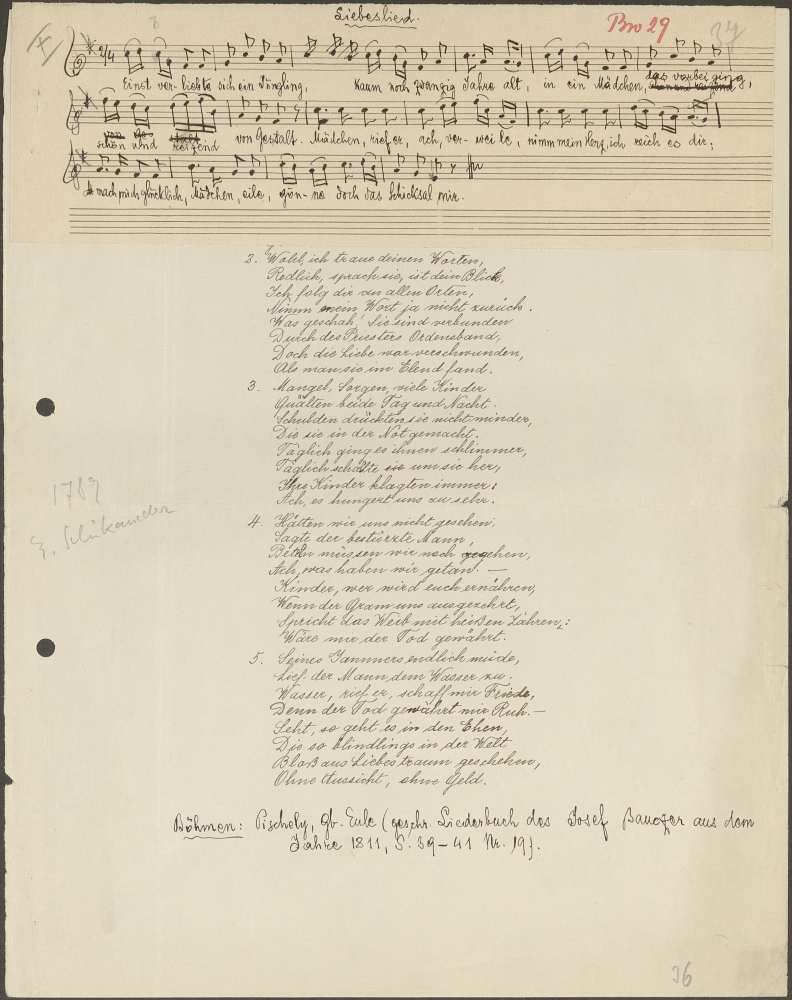 Liebeslied.
Bro 29
2/4
Einst ver-liebte sich ein Jüngling, kaum noch zwanzig Jahre alt, in ein Mädchen, das vorbei ging,
schön und reizend von Gestalt. Mädchen, rief er, ach, ver-wei-le, nimm mein Herz, ich reich es dir;
mach mich glücklich, Mädchen, eile, gön-ne doch das Schicksal mir.
2. Wohl, ich traue deinen Worten,
Redlich, sprach sie, ist dein Blick,
Ich folg dir an allen Orten,
Nimm mein Wort ja nicht zurück.
Was geschah? Sie sind verbunden
Durch des Priesters Ordensband,
Doch die Liebe war verschwunden,
Als man sie im Elend fand.
3. Mangel, Sorgen, viele Kinder
Quälten beide Tag und Nacht.
Schulden drückten sie nicht minder,
Die sie in der Not gemacht.
Täglich ging es ihnen schlimmer,
Täglich schallte um sie her,
Ihre Kinder klagten immer:
Ach, es hungert uns zu sehr.
4. Hätten wir uns nicht gesehen,
Sagte der bestürzte Mann,
Beteln müssen wir noch gehen,
Ach, was haben wir getan. —
Kinder, wer wird euch ernähren,
Wenn der Gram uns ausgezehrt,
Spricht das Weib mit heißen Zähren,:
Wäre mir der Tod gewährt.
5. Seines Jammers endlich müde,
Lief der Mann dem Wasser zu.
Wasser, rief er, schaff mir Friede,
Denn der Tod gewährt mir Ruh. —
Seht, so geht es in den Ehen,
Die so blindlings in der Welt
Bloß aus Liebestraum geschehen,
Ohne Aussicht, ohne Geld.
1789
E. Schikaneder
Böhmen: Pischely, Gb. Eule (geschr. Liederbuch des Josef Bauczer aus dem
Jahre 1811, S. 39-41 Nr. 19).
36